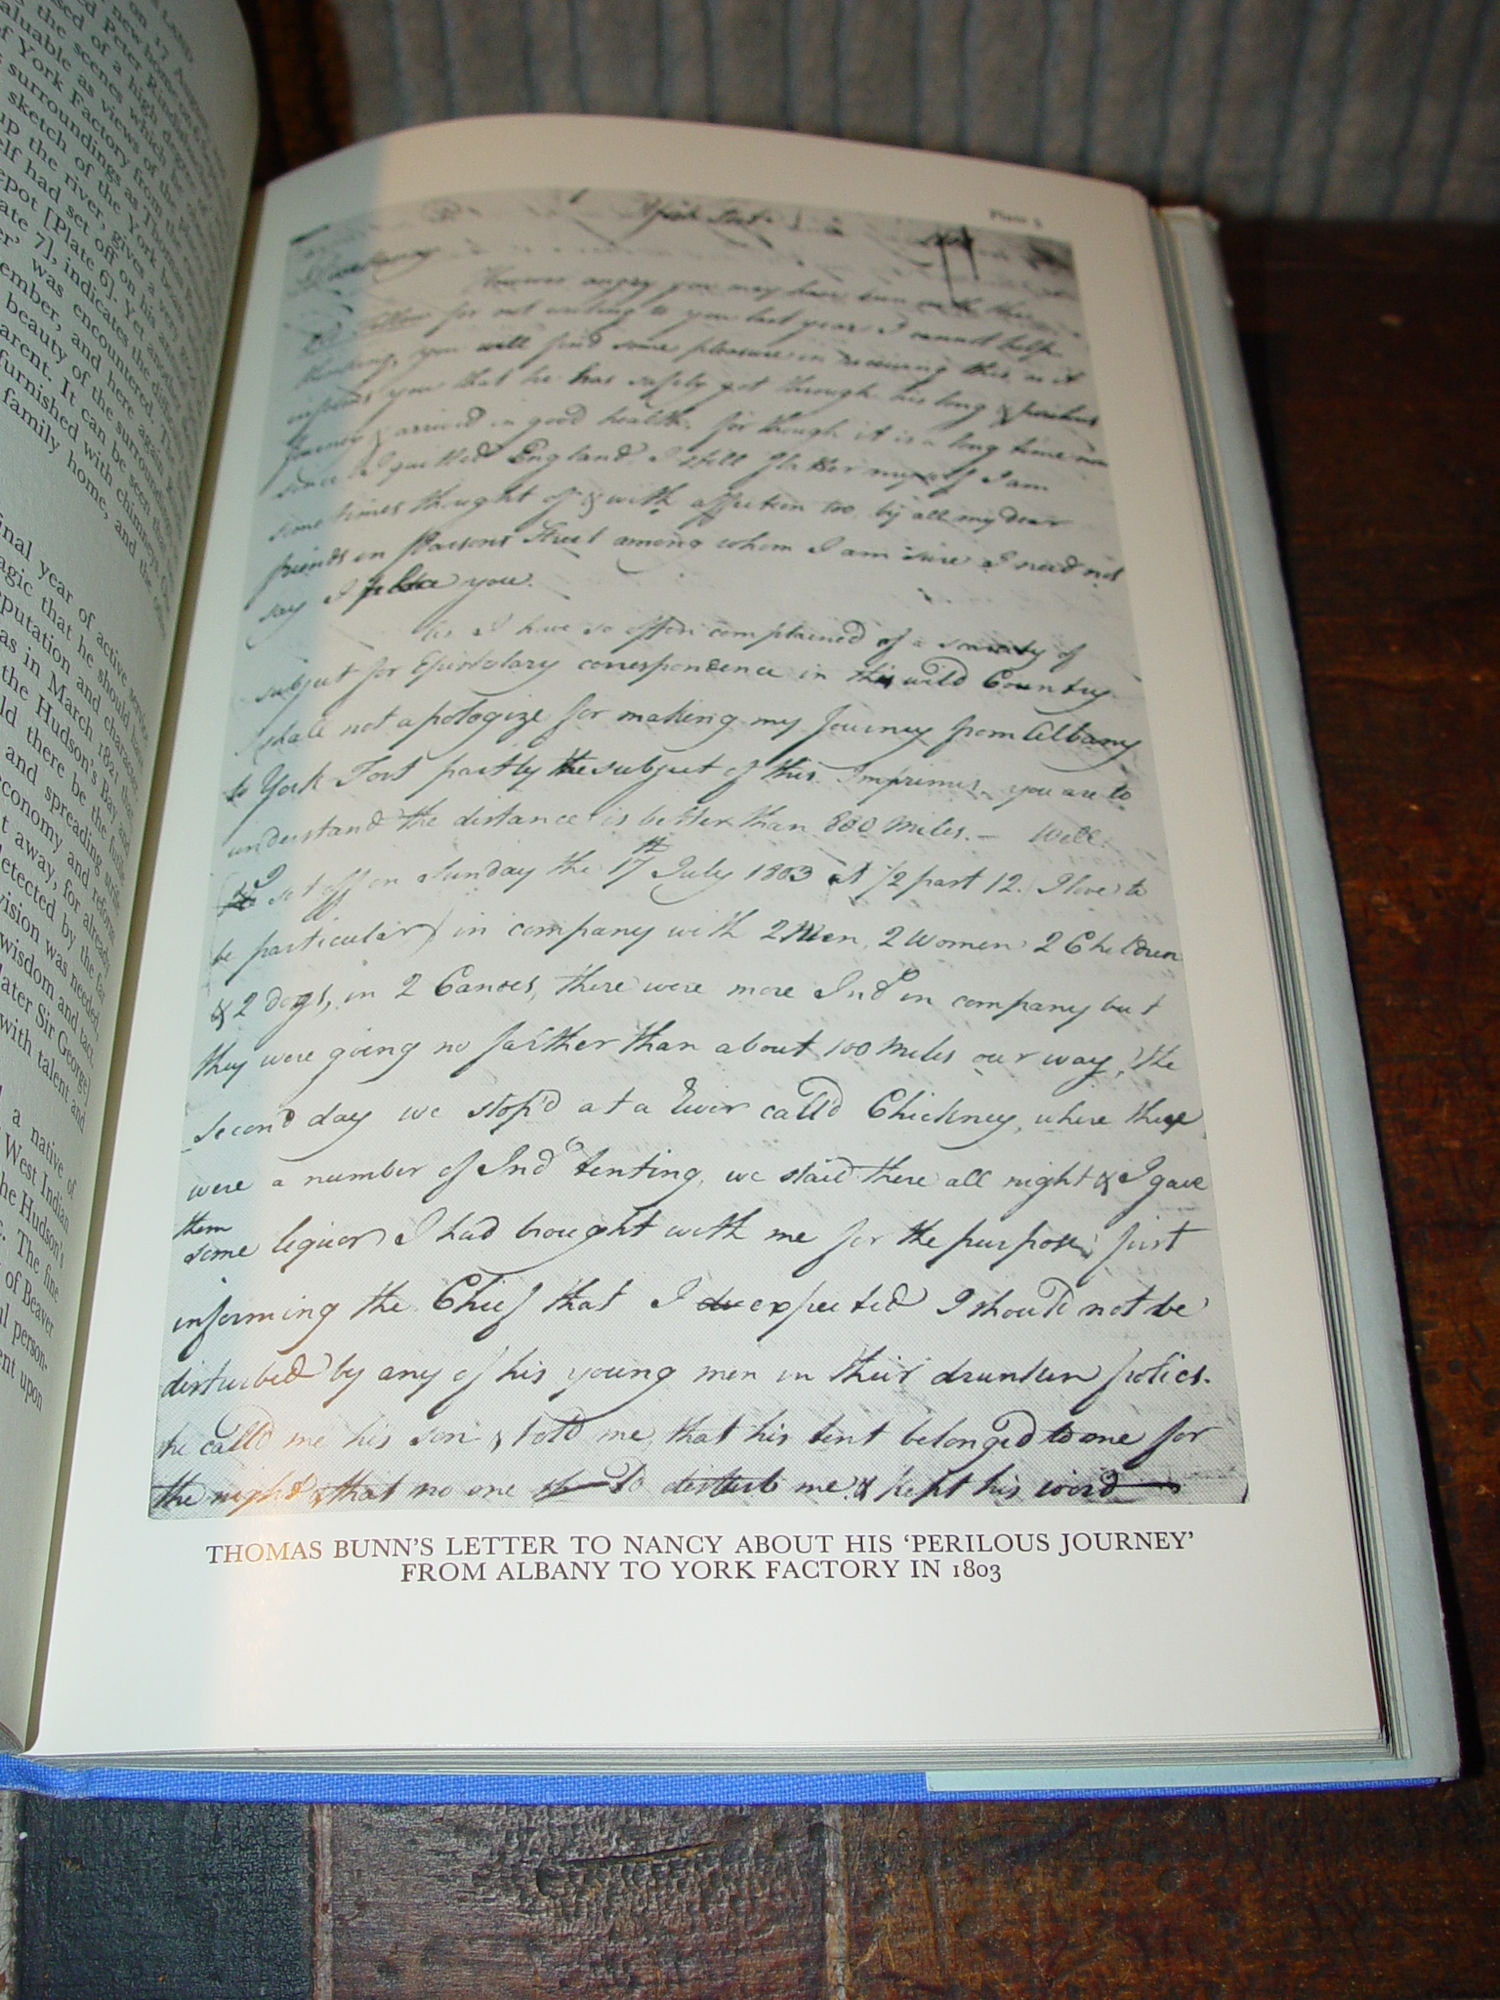 LAND
on 17 August
new home on
Peter Rindisbacher
sed of a high degree
the scenes which he
valuable as views of the
of York Factory from the
surroundings as Thomas
sketch of the York boats
up the river, gives a very
elf had set off on his
epot [Plate 6]. Yet another
ate 7], indicates the
er' was encountered.
ember, and here again
beauty of the
arent. It can be seen that
furnished with chimneys.
family home, and the
final year of active service
agic that he should
putation and character
as in March 1821 that
the Hudson's Bay and
ld there be the futile
and spreading strife
economy and reform
t away, for already
etected by the far
vision was needed,
wisdom and tact,
later Sir George)
with talent and
a native of
West Indian
he Hudson's
The fine
of Beaver
al person-
ent upon
Plate 5
York Fort
Dear Nancy
However angry you may have been with the
fellow for not writing to you last year I cannot help
thinking, you will find some pleasure in receiving this, as it
informs you that he has safely got through his long & perilous
Journey & arrived in good health. for though it is a long time now
since I quitted England. I still flatter myself I am
sometimes thought of & with affection too by all my dear
friends in Parsons Street among whom I am sure I need not
say I place you.
As I have so often complained of a scarcity of
subject for Epistolary correspondence in this wild Country
I shall not apologize for making my Journey from Albany
to York Fort partly the subject of this. Imprimis, you are to
understand the distance is better than 800 Miles. — Well.
I set off on Sunday the 17th July 1803 at 1/2 past 12. (I love to
be particular) in company with 2 Men, 2 Women 2 Children
& 2 dogs, in 2 Canoes, there were more Indn in company but
they were going no farther than about 100 Miles our way, the
second day we stop'd at a River call'd Chickney, where there
were a number of Indn tenting, we staid there all night & I gave
them
some liquor I had brought with me for the purpose, just
informing the Chief that I expected I should not be
disturbed by any of his young men in their drunken frolics.
he call'd me his son & told me, that his tent belonged to me for
the night & that no one to disturb me & kept his word —
THOMAS BUNN'S LETTER TO NANCY ABOUT HIS 'PERILOUS JOURNEY'
FROM ALBANY TO YORK FACTORY IN 1803